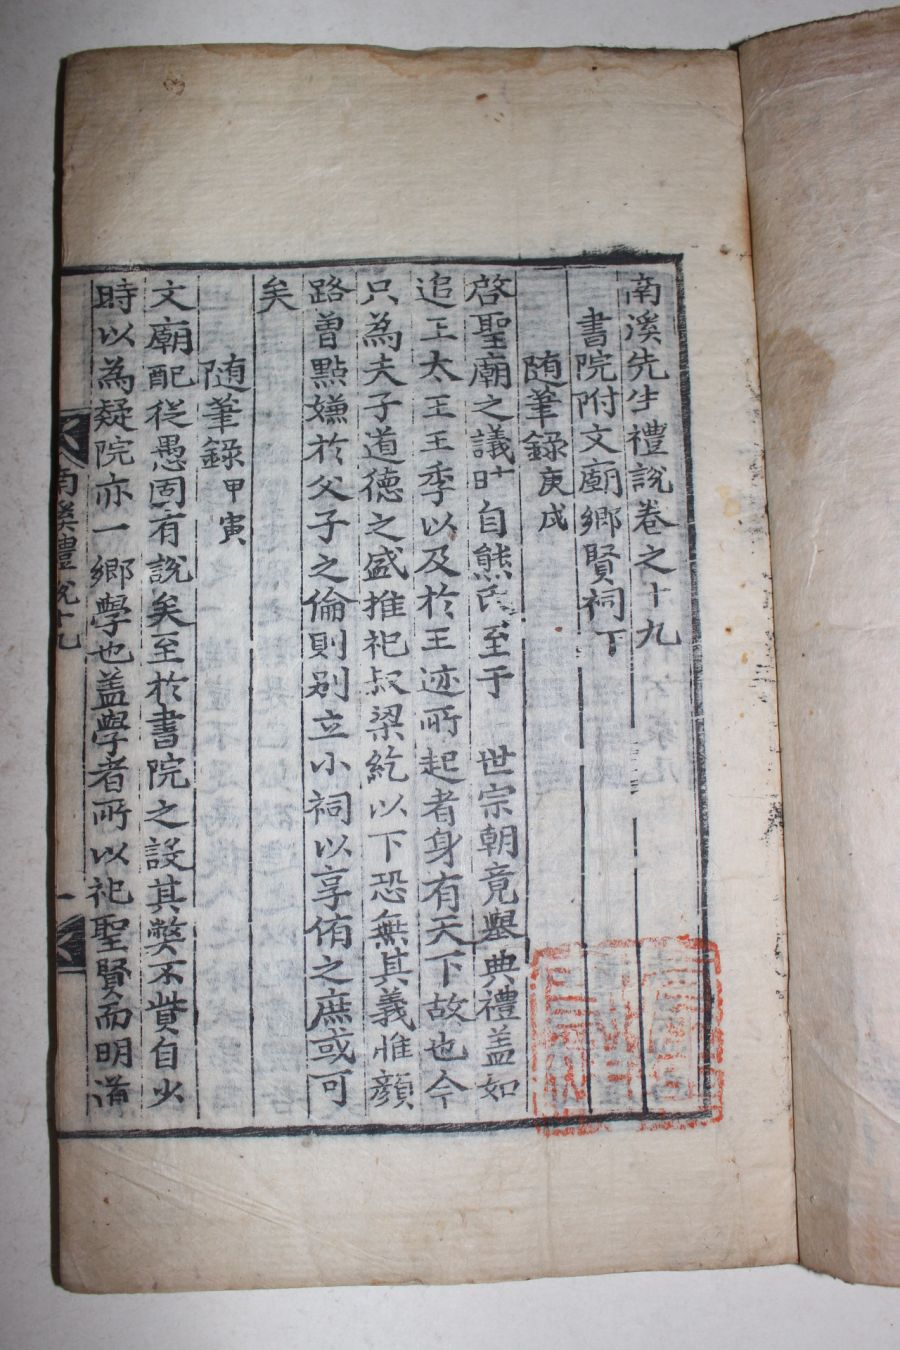 南溪先生禮說卷之十九
書院附文廟鄉賢祠下
随筆錄庚戌
啓聖廟之議昉自熊氏至于 世宗朝竟舉典禮盖如
追王太王王季以及於王迹所起者身有天下故也今
只為夫子道德之盛推祀叔梁紇以下恐無其義惟顏
路曾點嫌於父子之倫則别立小祠以享侑之庶或可
矣
随筆錄甲寅
文廟配從愚固有說矣至於書院之設其弊不貲自少
時以為疑院亦一鄉學也盖學者所以祀聖賢而明道
南溪禮說十九
一